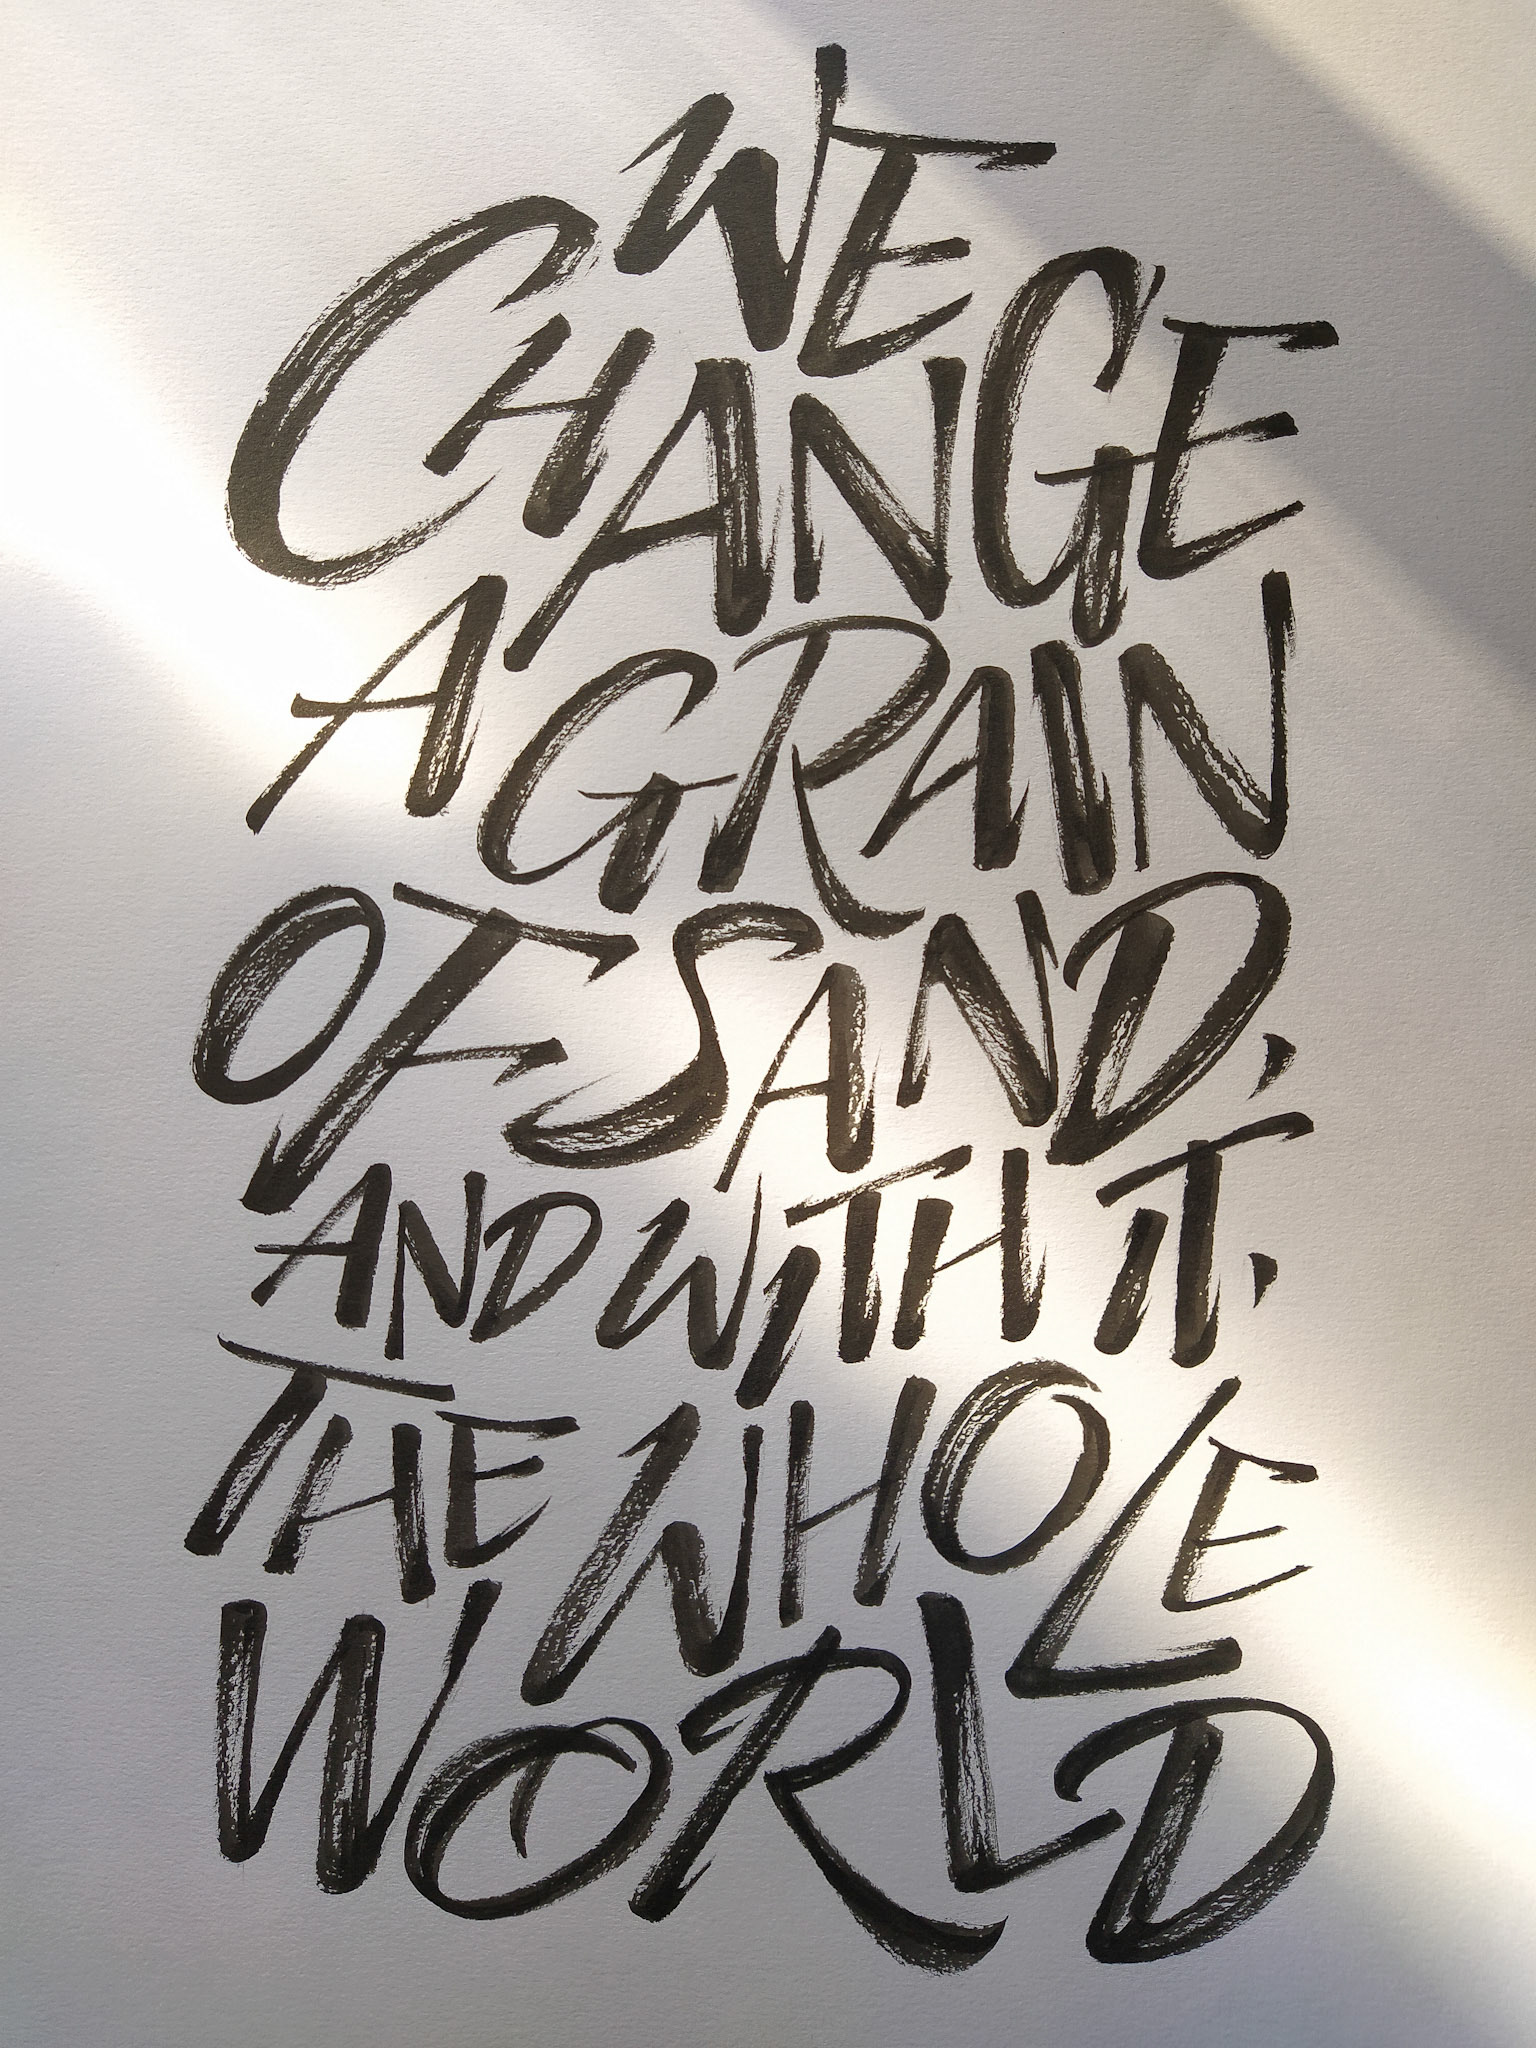 WE
CHANGE
A GRAIN
OF SAND,
AND WITH IT,
THE WHOLE
WORLD